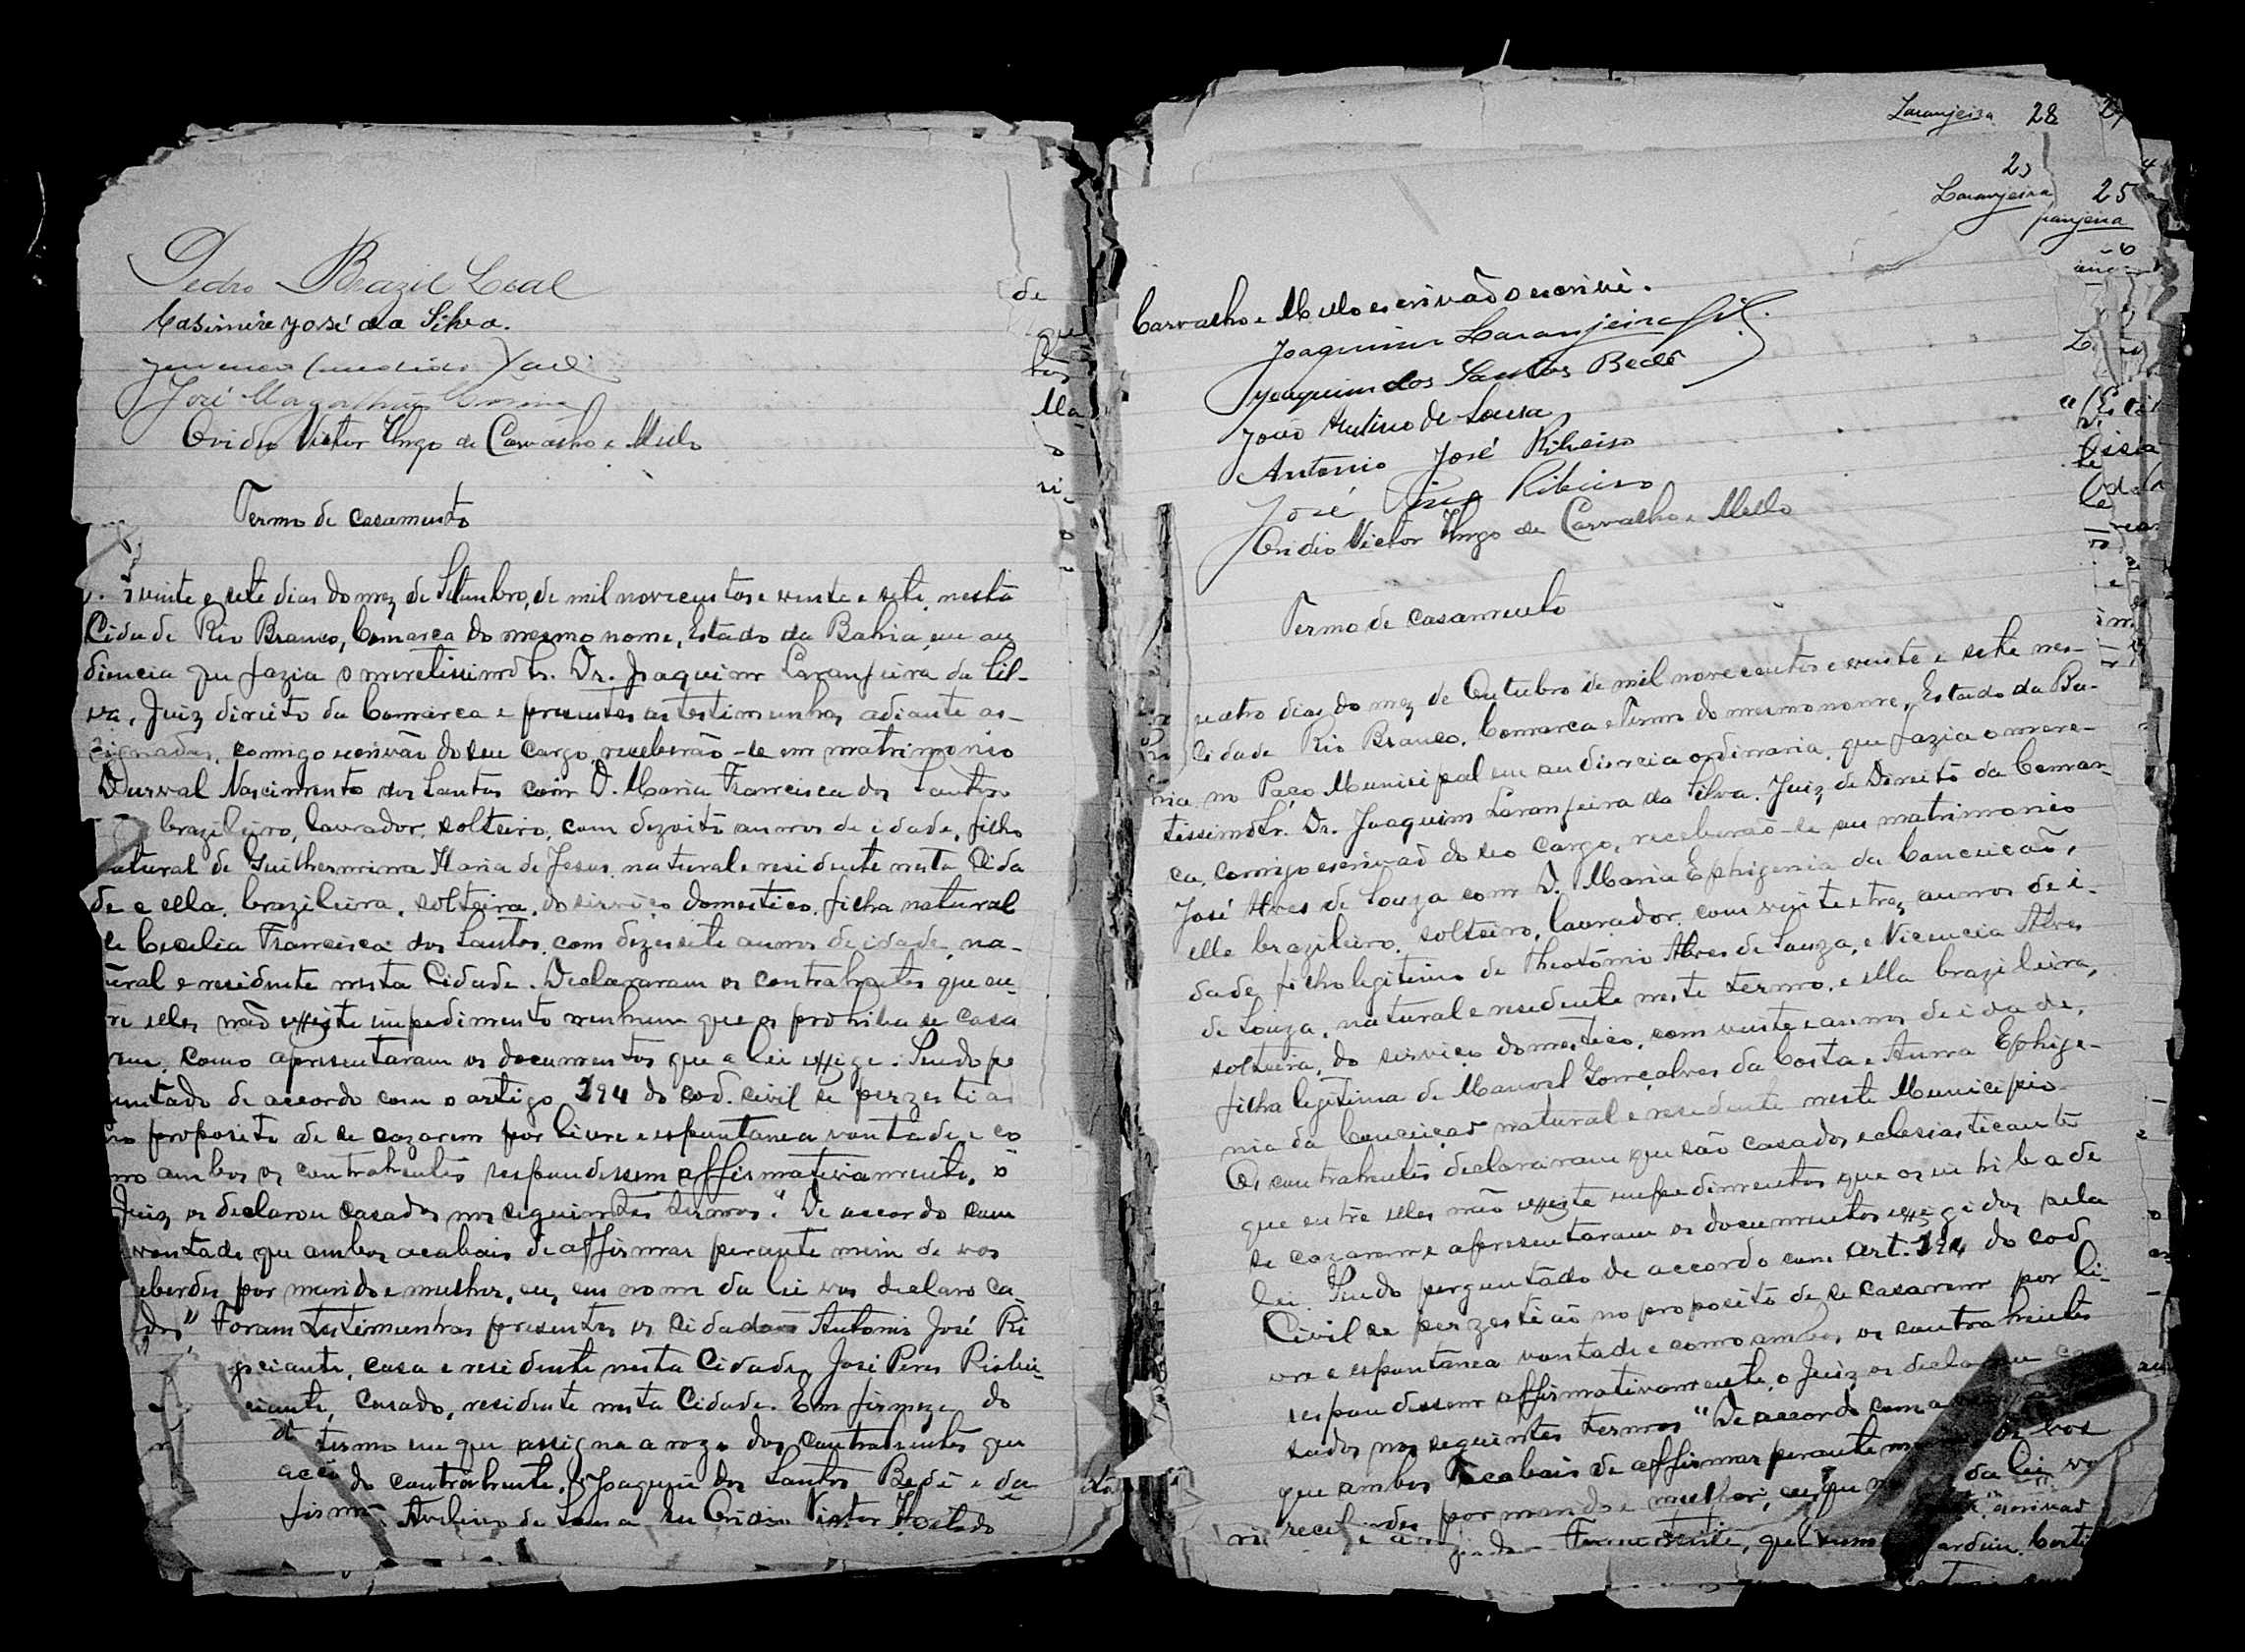 Pedro Brazil Leal
Casimire José da Silva.
José Magalhães
Ovidio Victor Hugo de Carvalho e Mello
Termo de casamento
vinte e sete dias do mez de Setembro, de mil novecentos e vinte e sete nesta
Cidade Rio Branco, Comarca do mesmo nome, Estado da Bahia, em au
diencia que fazia o meretissimo Sr. Dr. Joaquim Laranjeira da Sil-
va, Juiz direito da Comarca e presentes as testimunhas adiante as-
signadas, comigo escrivão do seu cargo, receberão-se em matrimonio
Durval Nascimento dos Santos com D. Maria Francisca dos Santos
brazileiro, lavrador, solteiro, com dezoito annos de idade, filho
natural de Guilhermina Maria de Jesus, natural e residente nesta Cida
de e ella, brazileira, solteira, do serviço domestico, filha natural
de Cecilia Francisca dos Santos, com dezesete annos de idade, na-
tural e residente nesta Cidade. Declararam os contrahentes que en-
tre elles não exziste impedimento nenhum que os prohiba se casa
rem, como apresentaram os documentos que a lei exzige. Sendo pe
untado de accordo com o artigo 194 do cod. civil se perzestiao
no proposito de se cazarem por livre e espontanea vontade, e co
mo ambos os contrahentes respondessem affirmativamente, o
Juiz os declarou casados nos seguintes termos: "De accordo com
vontade que ambos acabais de affirmar perante mim de vos
eberdes por marido e mulher, eu, em nome da lei vos declaro ca-
dos" Foram testimunhas presentes os cidadãos Antonio José Ri
gociante, casa e residente nesta Cidade, José Peres Ribei-
ciante, Casado, residente nesta Cidade. Em firmeza do
termo em que assigna a rogo dos contrahentes que
do contrahente, Joaquim dos Santos Bedê e da
Avelino de Sousa Eu Ovidio Victor
Laranjeira 28
25
Laranjeira 25
ranjeira
Carvalho e Mello escrivão escrivi.
Joaquim Laranjeira
Joaquim dos Santos Bedê
João Avelino de Sousa
Antonio José Ribeiro
José Pires Ribeiro
Ovidio Victor Hugo de Carvalho e Mello
Termo de casamento
uatro dias do mez de Outubro de mil novecentos e vinte e sete nes-
Cidade Rio Branco, Comarca e Termo do mesmo nome, Estado da Ba-
hia, no Paço Municipal em audiencia ordinaria, que fazia o mere-
tissimo Sr. Dr. Joaquim Laranjeira da Silva, Juiz de Direito da Comar-
ca, comigo escrivão do seo cargo, receberão-se em matrimonio
José Alves de Souza com D. Maria Ephigenia da Conceição,
elle brazileiro, solteiro, lavrador, com vinte e trez annos de i-
dade, filho legitimo de Theotonio Alves de Souza, e Vicencia Alves
de Souza, natural e residente neste termo, e ella brazileira,
solteira, do serviço domestico, com vinte e annos de idade,
filha legitima de Manoel Gonçalves da Costa e Anna Ephige-
nia da Conceição natural e residente neste Municipio.
Os contrahentes declararam que são casados eclesiasticante
que entre elles não exziste impedimentos que os inhiba de
se cazarem e apresentaram os documentos exzigidos pela
lei. Sendo perguntado de accordo com Art. 194 do cod
Civil se perzestiao no proposito de se casarem por li-
vre e espontanea vontade e como ambos os contrahentes
respondessem affirmativamente, o Juiz os declarou ca
sados nos seguintes termos "De accordo com a
que ambos acabais de affirmar perante m de vos
receberdes por marido e mulher, eu, que n da lei vo